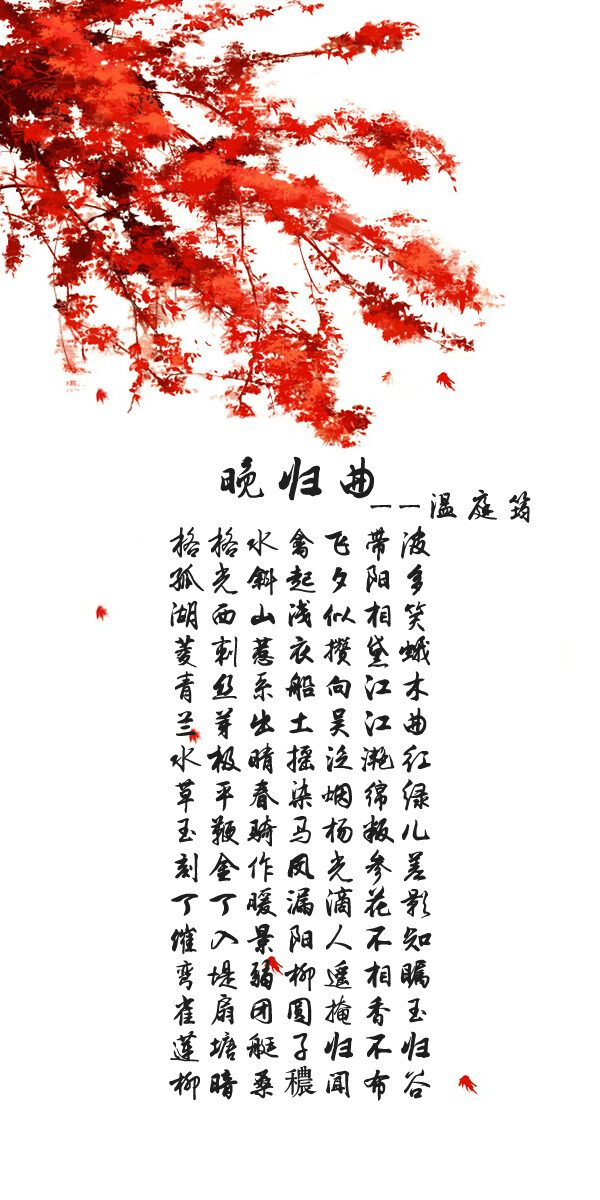 晚归曲
——温庭筠
格格水禽飞带波
孤光斜起夕阳多
湖西山浅似相笑
菱刺惹衣攒黛蛾
青丝系船向江木
兰芽出土吴江曲
水极晴摇泛滟红
草平春染烟绵绿
玉鞭骑马杨叛儿
刻金作凤光参差
丁丁暖漏滴花影
催入景阳人不知
弯堤弱柳遥相瞩
雀扇团圆掩香玉
莲塘艇子归不归
柳暗桑穠闻布谷